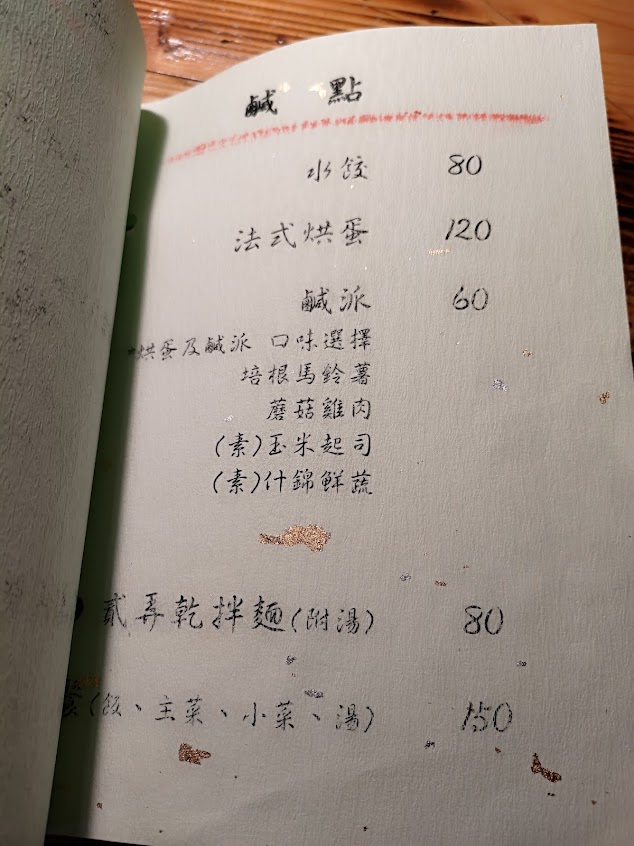 鹹 點
水餃 80
法式烘蛋 120
鹹派 60
烘蛋及鹹派 口味選擇
培根馬鈴薯
蘑菇雞肉
(素)玉米起司
(素)什錦鮮蔬
貳弄乾拌麵(附湯) 80
餐(飯、主菜、小菜、湯) 150